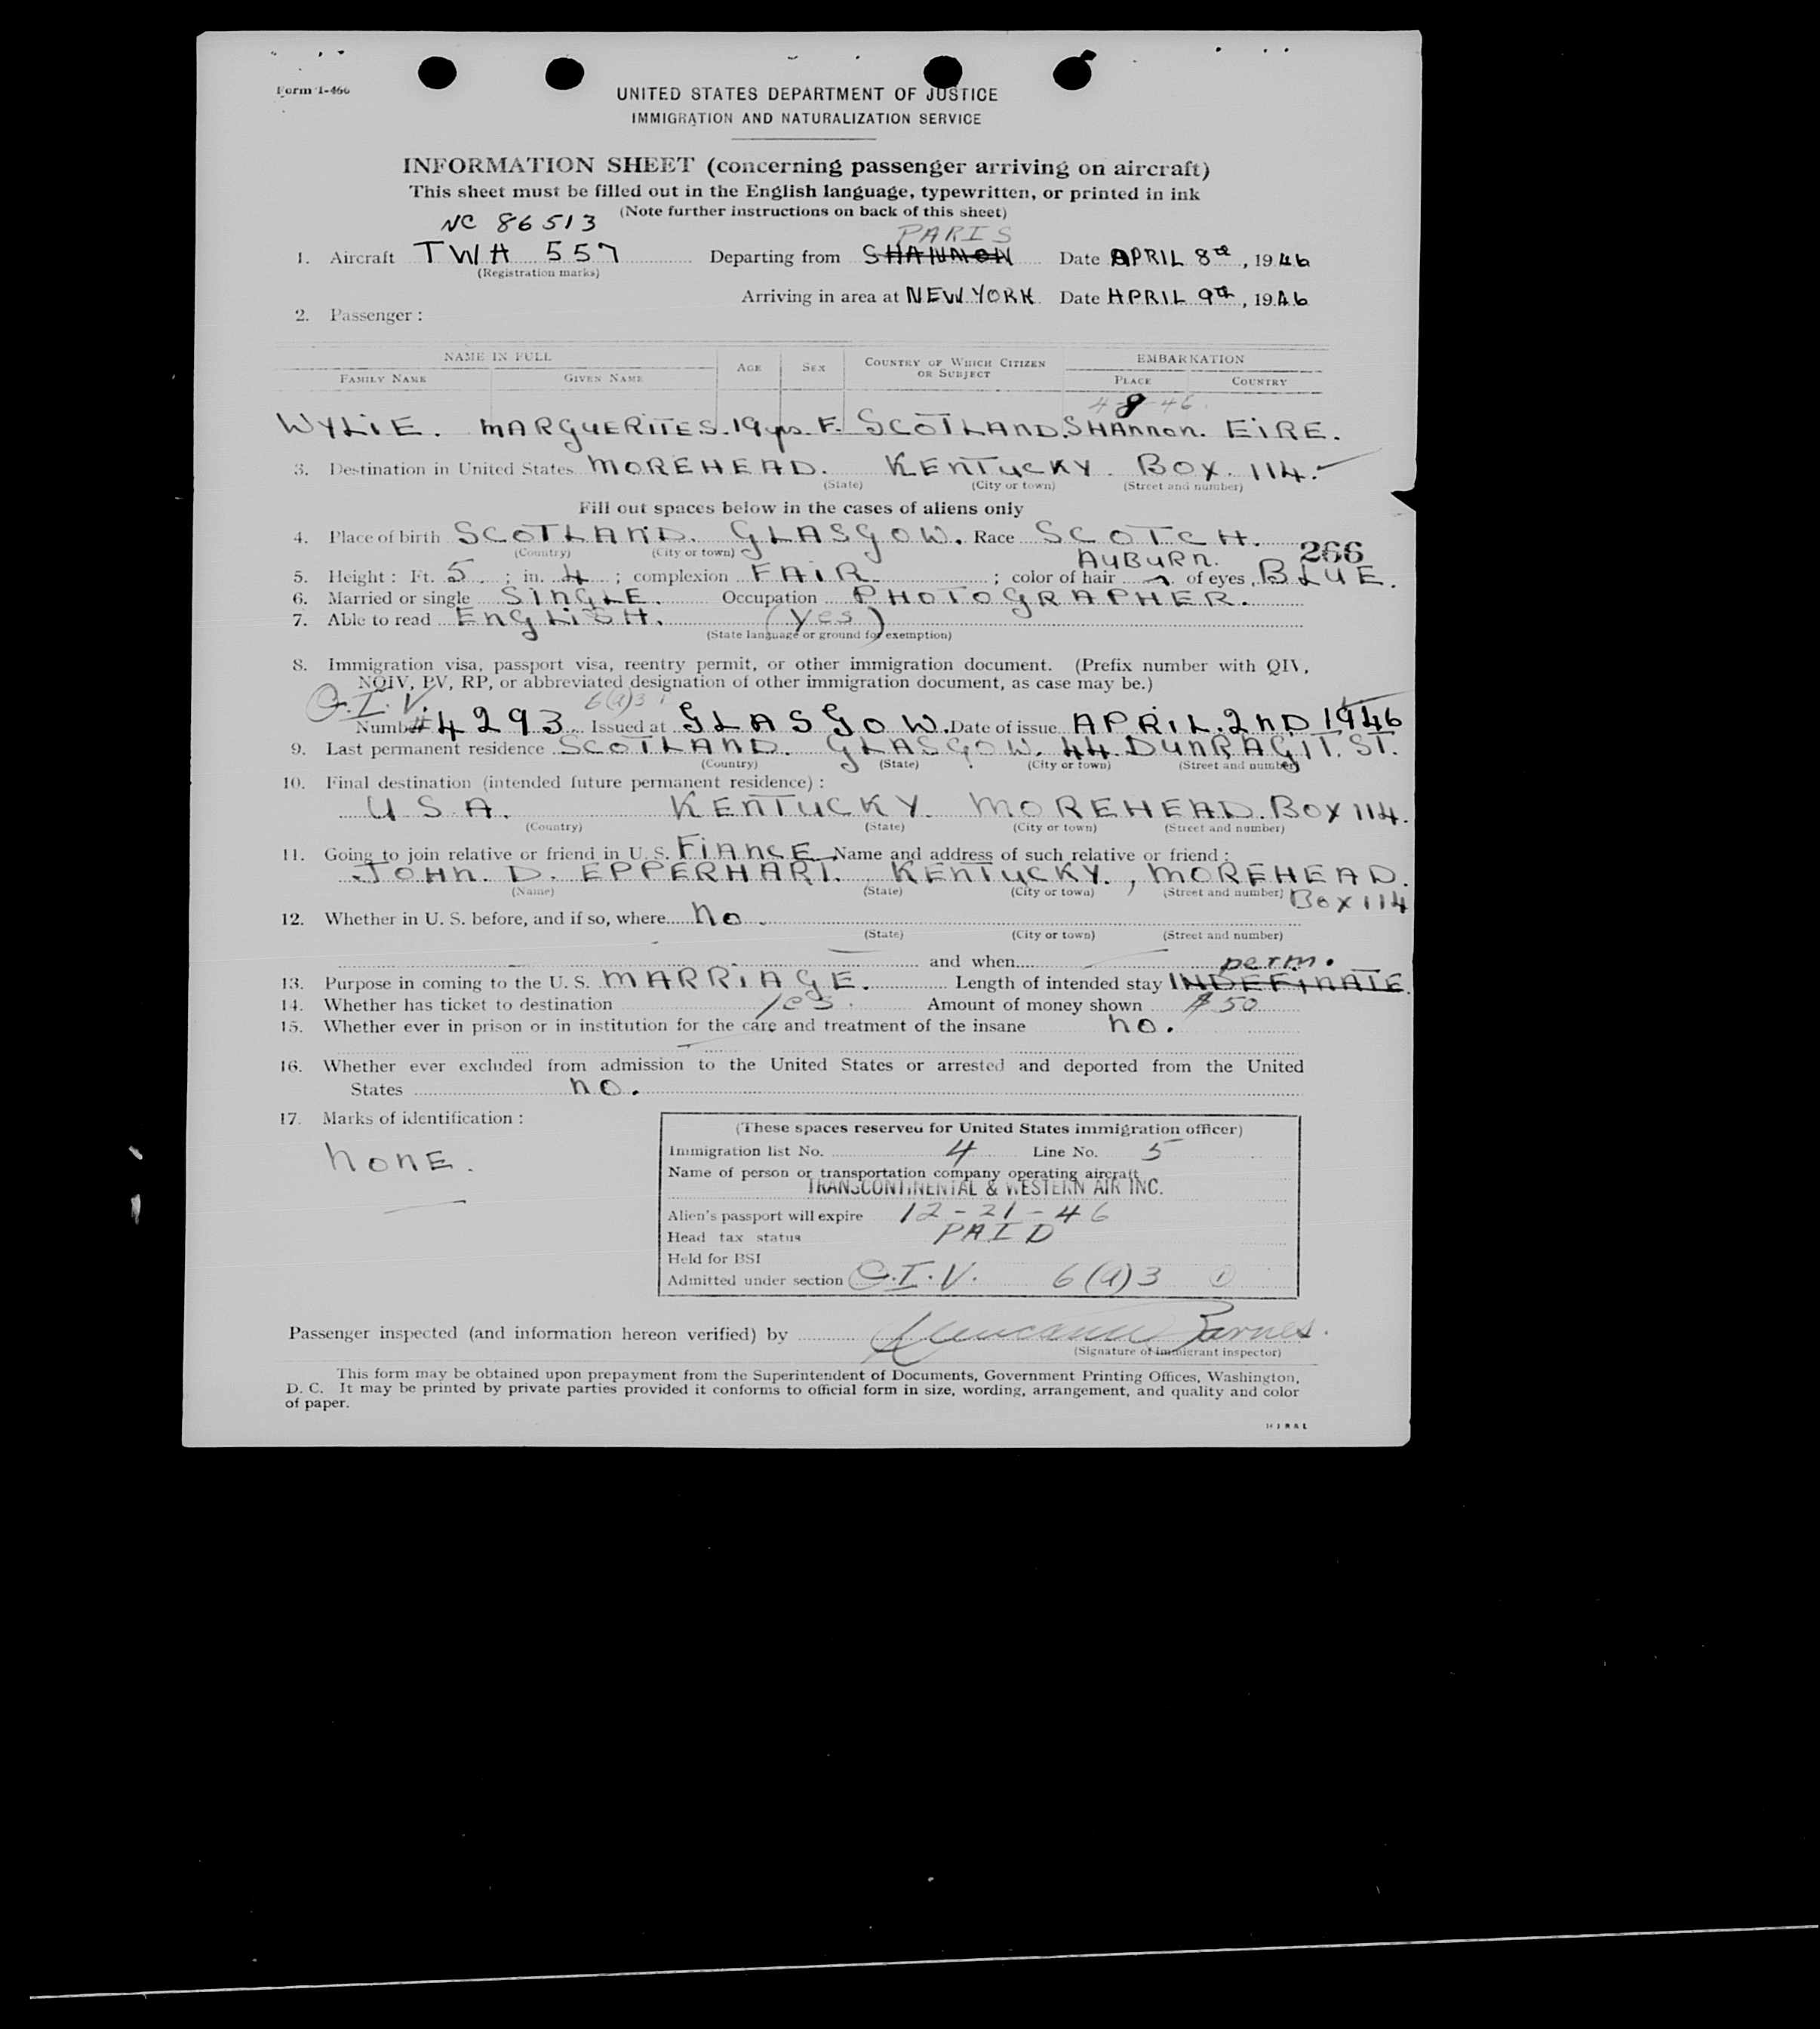 Form I-466
UNITED STATES DEPARTMENT OF JUSTICE
IMMIGRATION AND NATURALIZATION SERVICE
INFORMATION SHEET (concerning passenger arriving on aircraft)
This sheet must be filled out in the English language, typewritten, or printed in ink
(Note further instructions on back of this sheet)
NC 86513
PARIS
1. Aircraft TWA 557 Departing from SHANNON Date APRIL 8th, 1946
(Registration marks)
Arriving in area at NEW YORK Date APRIL 9th, 1946
2. Passenger :
NAME IN FULL AGE SEX COUNTRY OF WHICH CITIZEN OR SUBJECT EMBARKATION
FAMILY NAME GIVEN NAME PLACE COUNTRY
4-8-46
WYLIE. MARGUERITE S. 19 yrs F. SCOTLAND. SHANNON. EIRE.
3. Destination in United States MOREHEAD. KENTUCKY. BOX. 114.
(State) (City or town) (Street and number)
Fill out spaces below in the cases of aliens only
4. Place of birth SCOTLAND. GLASGOW. Race SCOTCH.
(Country) (City or town)
266
AUBURN.
5. Height : Ft. 5. ; in. 4 ; complexion FAIR ; color of hair of eyes, BLUE.
6. Married or single SINGLE. Occupation PHOTOGRAPHER.
7. Able to read ENGLISH. (yes)
(State language or ground for exemption)
8. Immigration visa, passport visa, reentry permit, or other immigration document. (Prefix number with QIV,
NQIV, PV, RP, or abbreviated designation of other immigration document, as case may be.)
Q.I.V. 6(a)3
Number #4293 Issued at GLASGOW. Date of issue APRIL. 2ND 1946
9. Last permanent residence SCOTLAND. GLASGOW. 44 DUNRAGIT. ST.
(Country) (State) (City or town) (Street and number)
10. Final destination (intended future permanent residence) :
U.S.A. KENTUCKY MOREHEAD. BOX 114.
(Country) (State) (City or town) (Street and number)
11. Going to join relative or friend in U. S. FIANCE Name and address of such relative or friend :
JOHN. D. EPPERHART. KENTUCKY., MOREHEAD.
(Name) (State) (City or town) (Street and number) BOX 114
12. Whether in U. S. before, and if so, where No.
(State) (City or town) (Street and number)
and when
perm.
13. Purpose in coming to the U. S. MARRIAGE. Length of intended stay INDEFINATE.
14. Whether has ticket to destination yes. Amount of money shown $50
15. Whether ever in prison or in institution for the care and treatment of the insane no.
16. Whether ever excluded from admission to the United States or arrested and deported from the United
States no.
17. Marks of identification :
NONE.
(These spaces reserved for United States immigration officer)
Immigration list No. 4 Line No. 5
Name of person or transportation company operating aircraft
TRANSCONTINENTAL & WESTERN AIR INC.
Alien's passport will expire 12-21-46
Head tax status PAID
Held for BSI
Admitted under section Q.I.V. 6(a)3
Passenger inspected (and information hereon verified) by Barnes.
(Signature of immigrant inspector)
This form may be obtained upon prepayment from the Superintendent of Documents, Government Printing Offices, Washington,
D. C. It may be printed by private parties provided it conforms to official form in size, wording, arrangement, and quality and color
of paper.